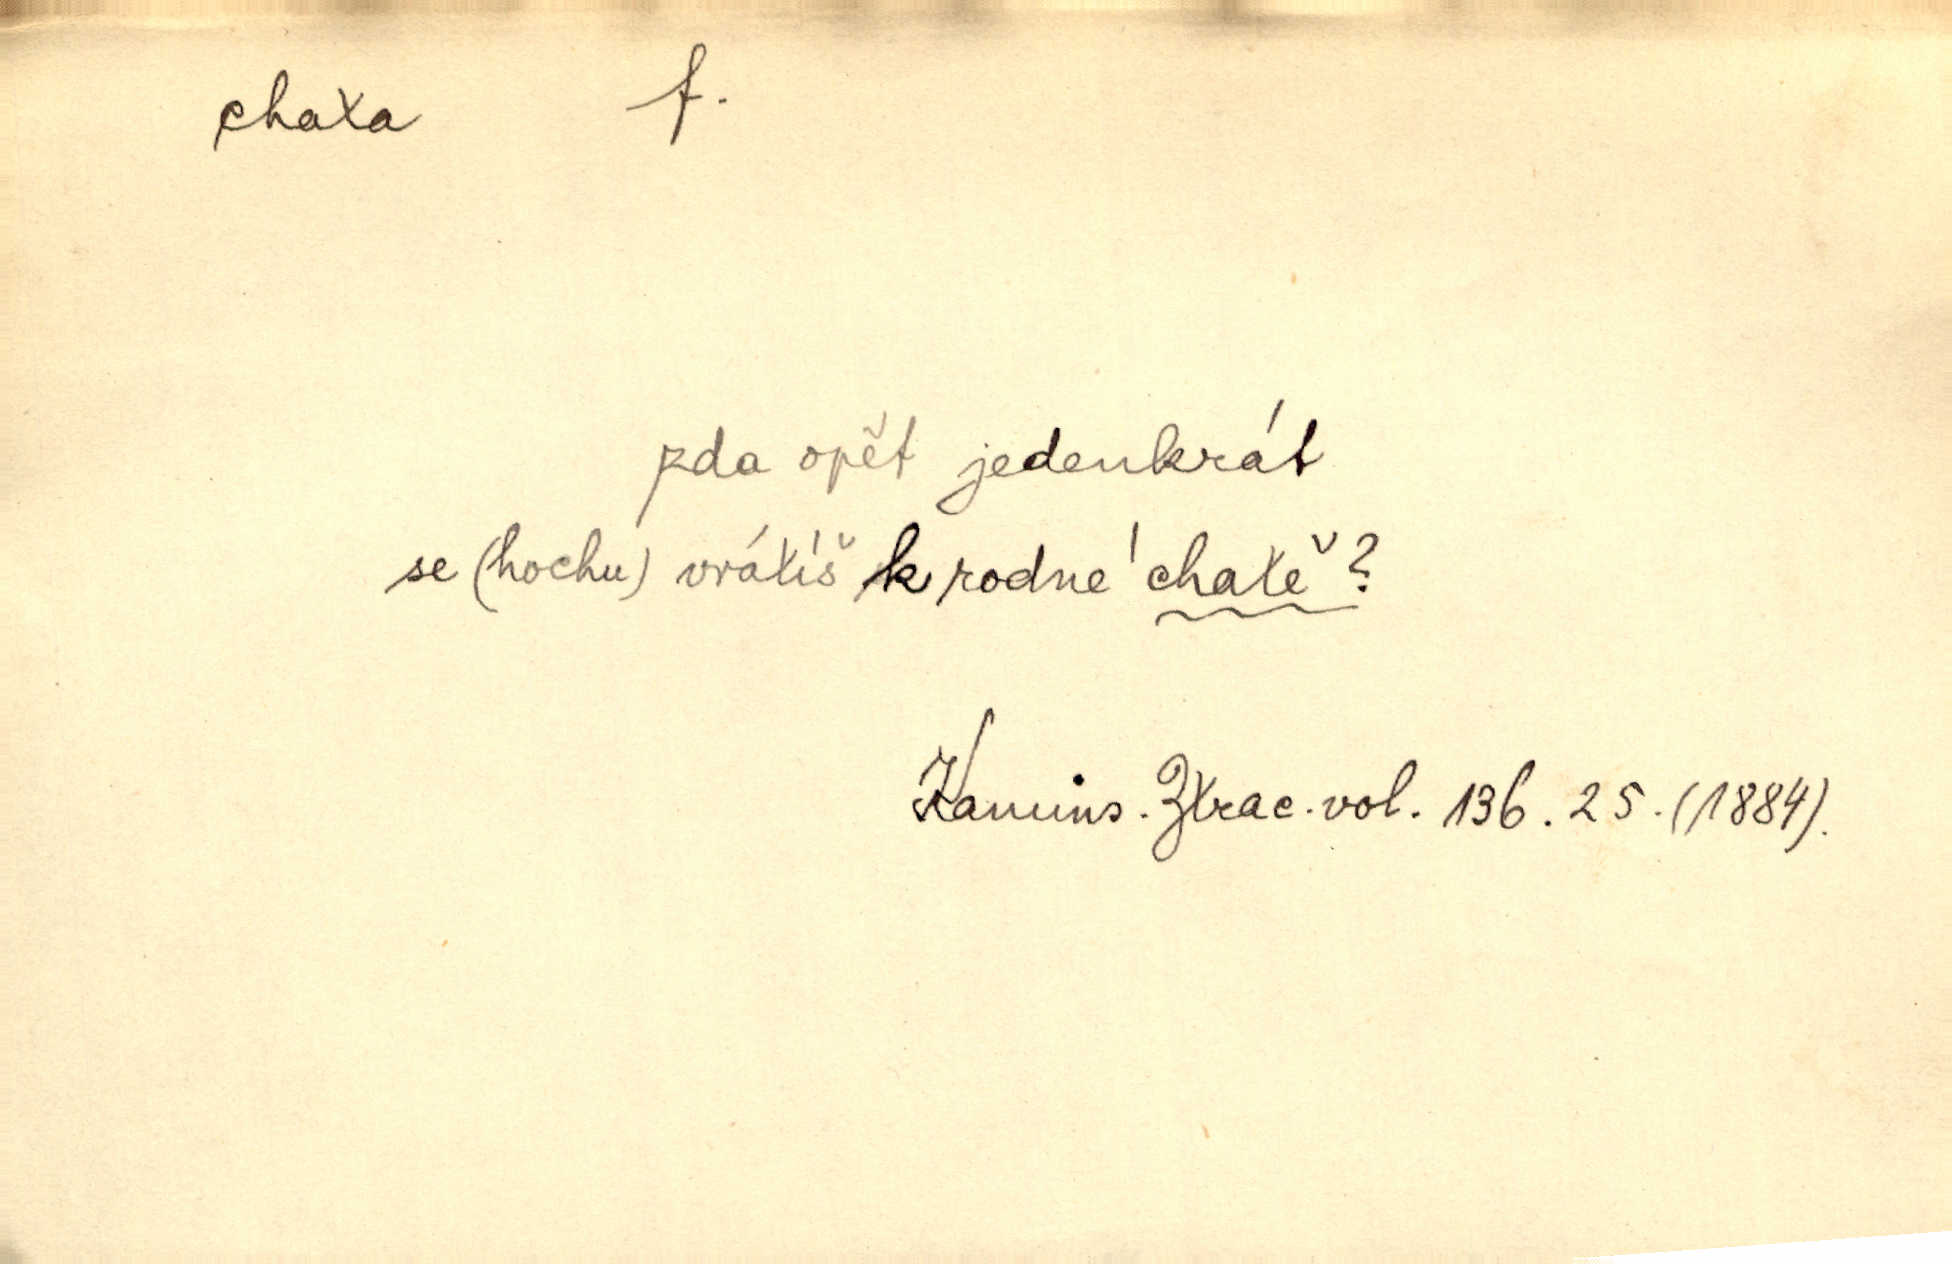 chata f.
zda opět jedenkrát
se (hochu) vrátíš k rodné chatě?
Kamins. Ztrac. vol. 136. 25. (1884).